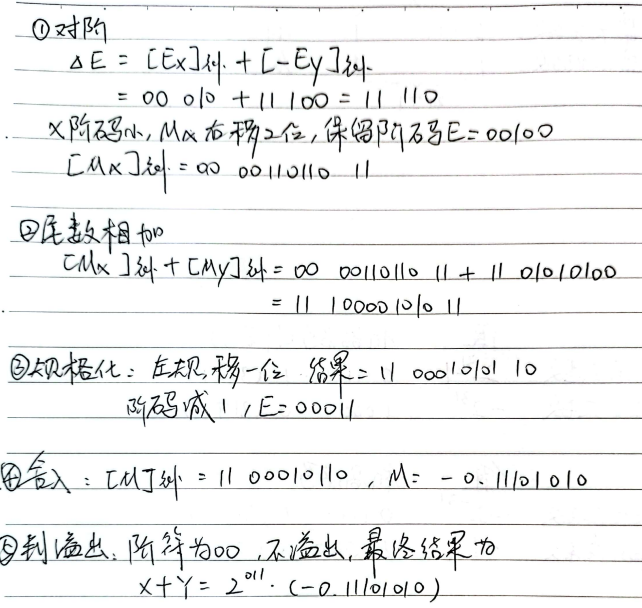 ①对阶
ΔE = [Ex]补 + [-Ey]补
= 00 010 + 11 100 = 11 110
X阶码小, Mx右移2位, 保留阶码E=00100
[Mx]补 = 00 00110110 11
②尾数相加
[Mx]补 + [My]补 = 00 00110110 11 + 11 01010100
= 11 10001010 11
③规格化: 左规,移一位 结果= 11 00010101 10
阶码减1, E=00011
④舍入: [M]补 = 11 00010110, M= -0.11101010
⑤判溢出: 阶符为00, 不溢出, 最终结果为
X+Y= 2^011·(-0.11101010)